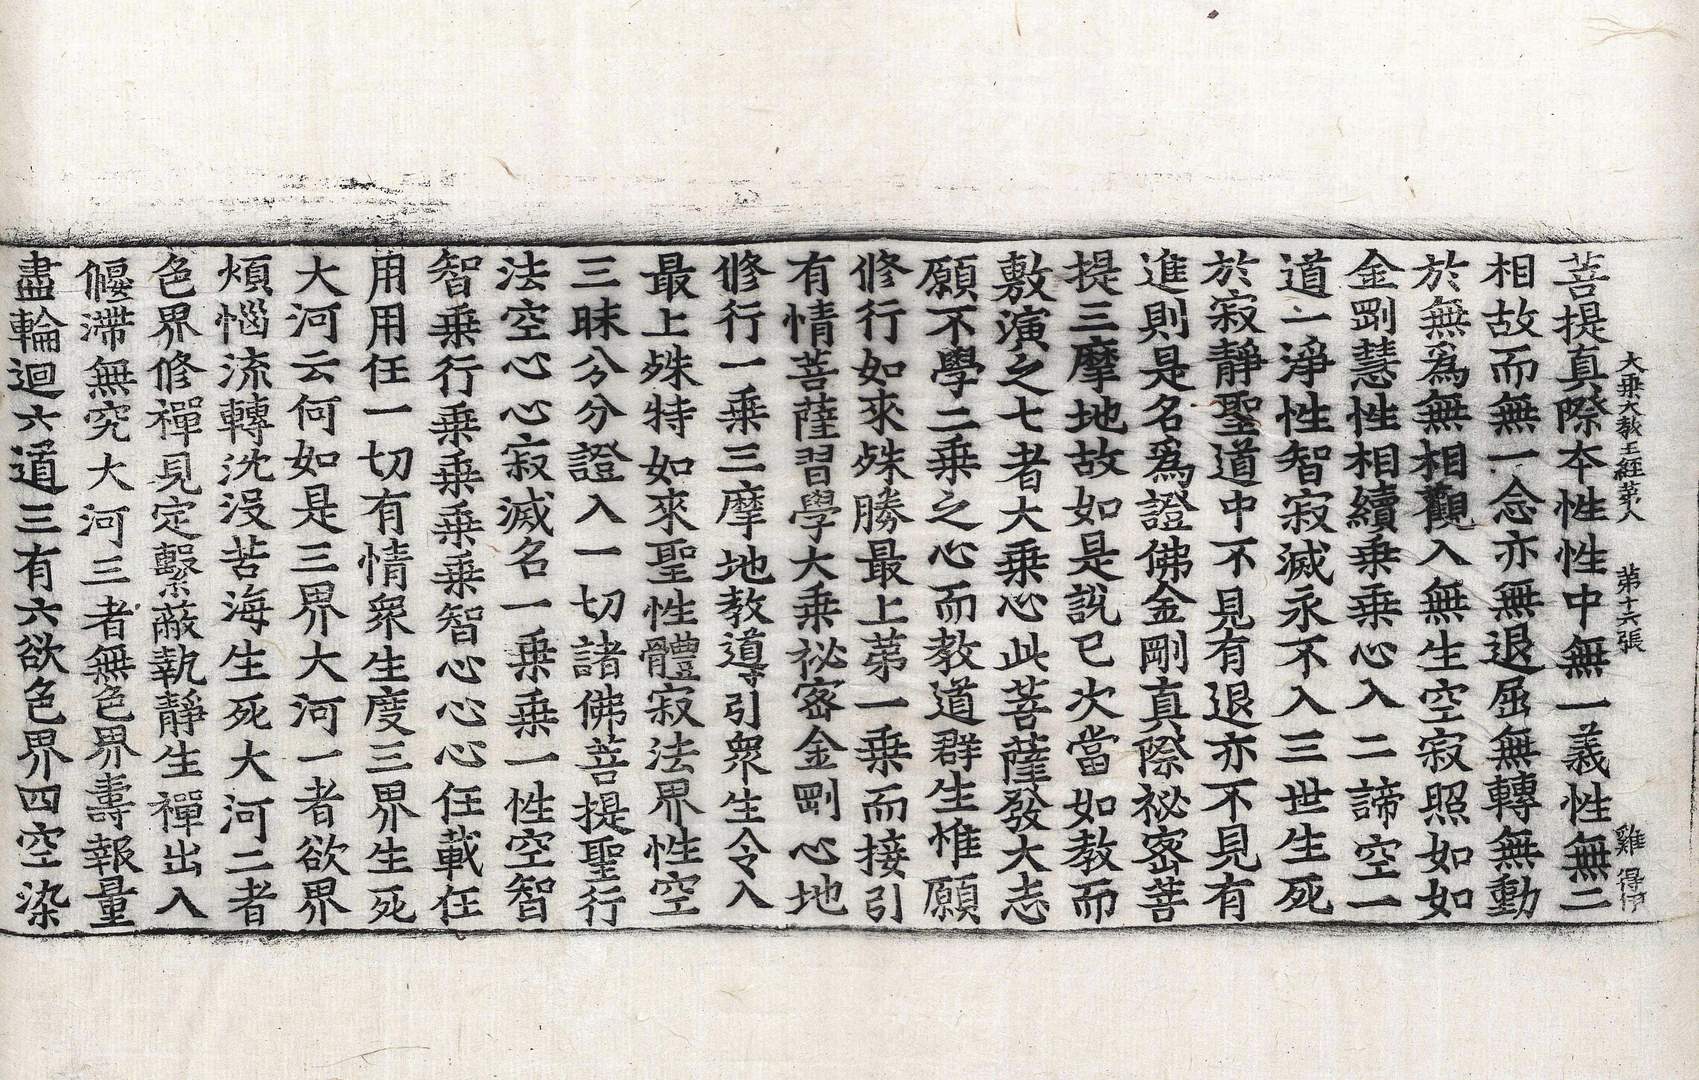 大乗大教王経苐八 苐十六張 雞 得伊
菩提真際本性性中無一義性無二
相故而無一念亦無退屈無轉無動
於無為無相觀入無生空寂照如如
金剛慧性相續乗乗心入二諦空一
道一淨性智寂滅永不入三世生死
於寂靜聖道中不見有退亦不見有
進則是名爲證佛金剛真際祕密菩
提三摩地故如是說已次當如教而
敷演之七者大乗心此菩薩發大志
願不學二乗之心而教道群生惟願
修行如來殊勝最上苐一乗而接引
有情菩薩習學大乗祕密金剛心地
修行一乗三摩地教導引衆生令入
最上殊特如來聖性體寂法界性空
三昧分分證入一切諸佛菩提聖行
法空心心寂滅名一乗乗一性空智
智乗行乗乗乗乗智心心心任載任
用用任一切有情衆生度三界生死
大河云何如是三界大河一者欲界
煩惱流轉沈没苦海生死大河二者
色界修禪見定繫蔽執靜生禪出入
㑋滯無究大河三者無色界壽報量
盡輪迴六道三有六欲色界四空染